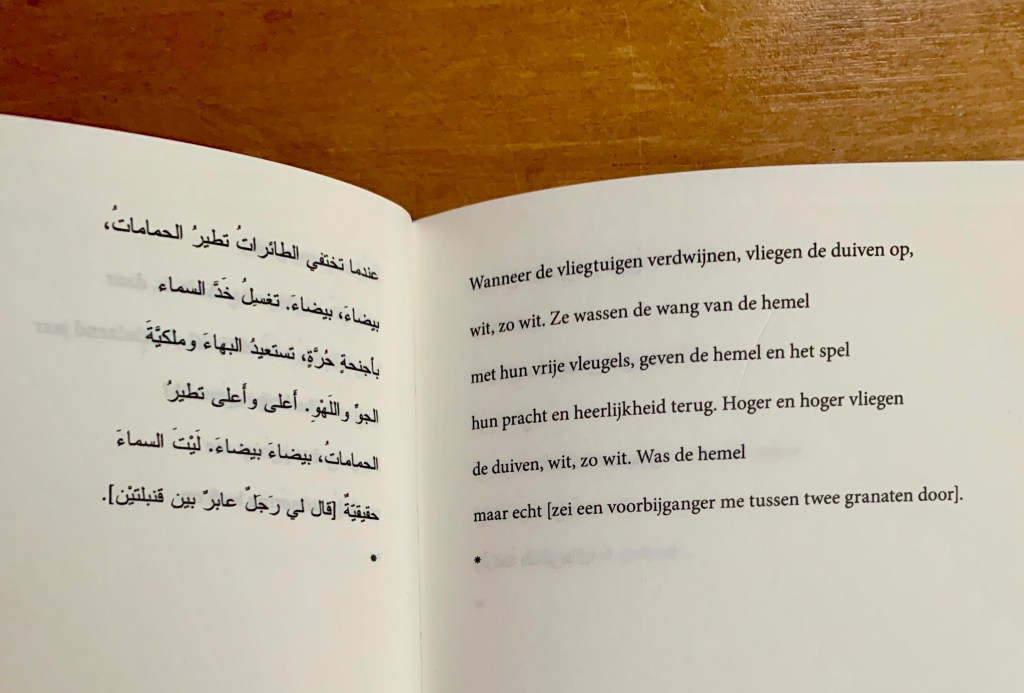 عندما تختفي الطائراتُ تطيرُ الحماماتُ،
بيضاءَ، بيضاءَ. تغسِلُ خَدَّ السماء
بأجنحةٍ حُرَّةٍ، تستعيدُ البهاءَ وملكيَّةَ
الجوِّ واللَهْوِ. أَعلى وأَعلى تطيرُ
الحماماتُ، بيضاءَ بيضاءَ. لَيْتَ السماءَ
حقيقيّةٌ [قال لي رَجَلٌ عابرٌ بين قنبلتيْن].
*
Wanneer de vliegtuigen verdwijnen, vliegen de duiven op,
wit, zo wit. Ze wassen de wang van de hemel
met hun vrije vleugels, geven de hemel en het spel
hun pracht en heerlijkheid terug. Hoger en hoger vliegen
de duiven, wit, zo wit. Was de hemel
maar echt [zei een voorbijganger me tussen twee granaten door].
*